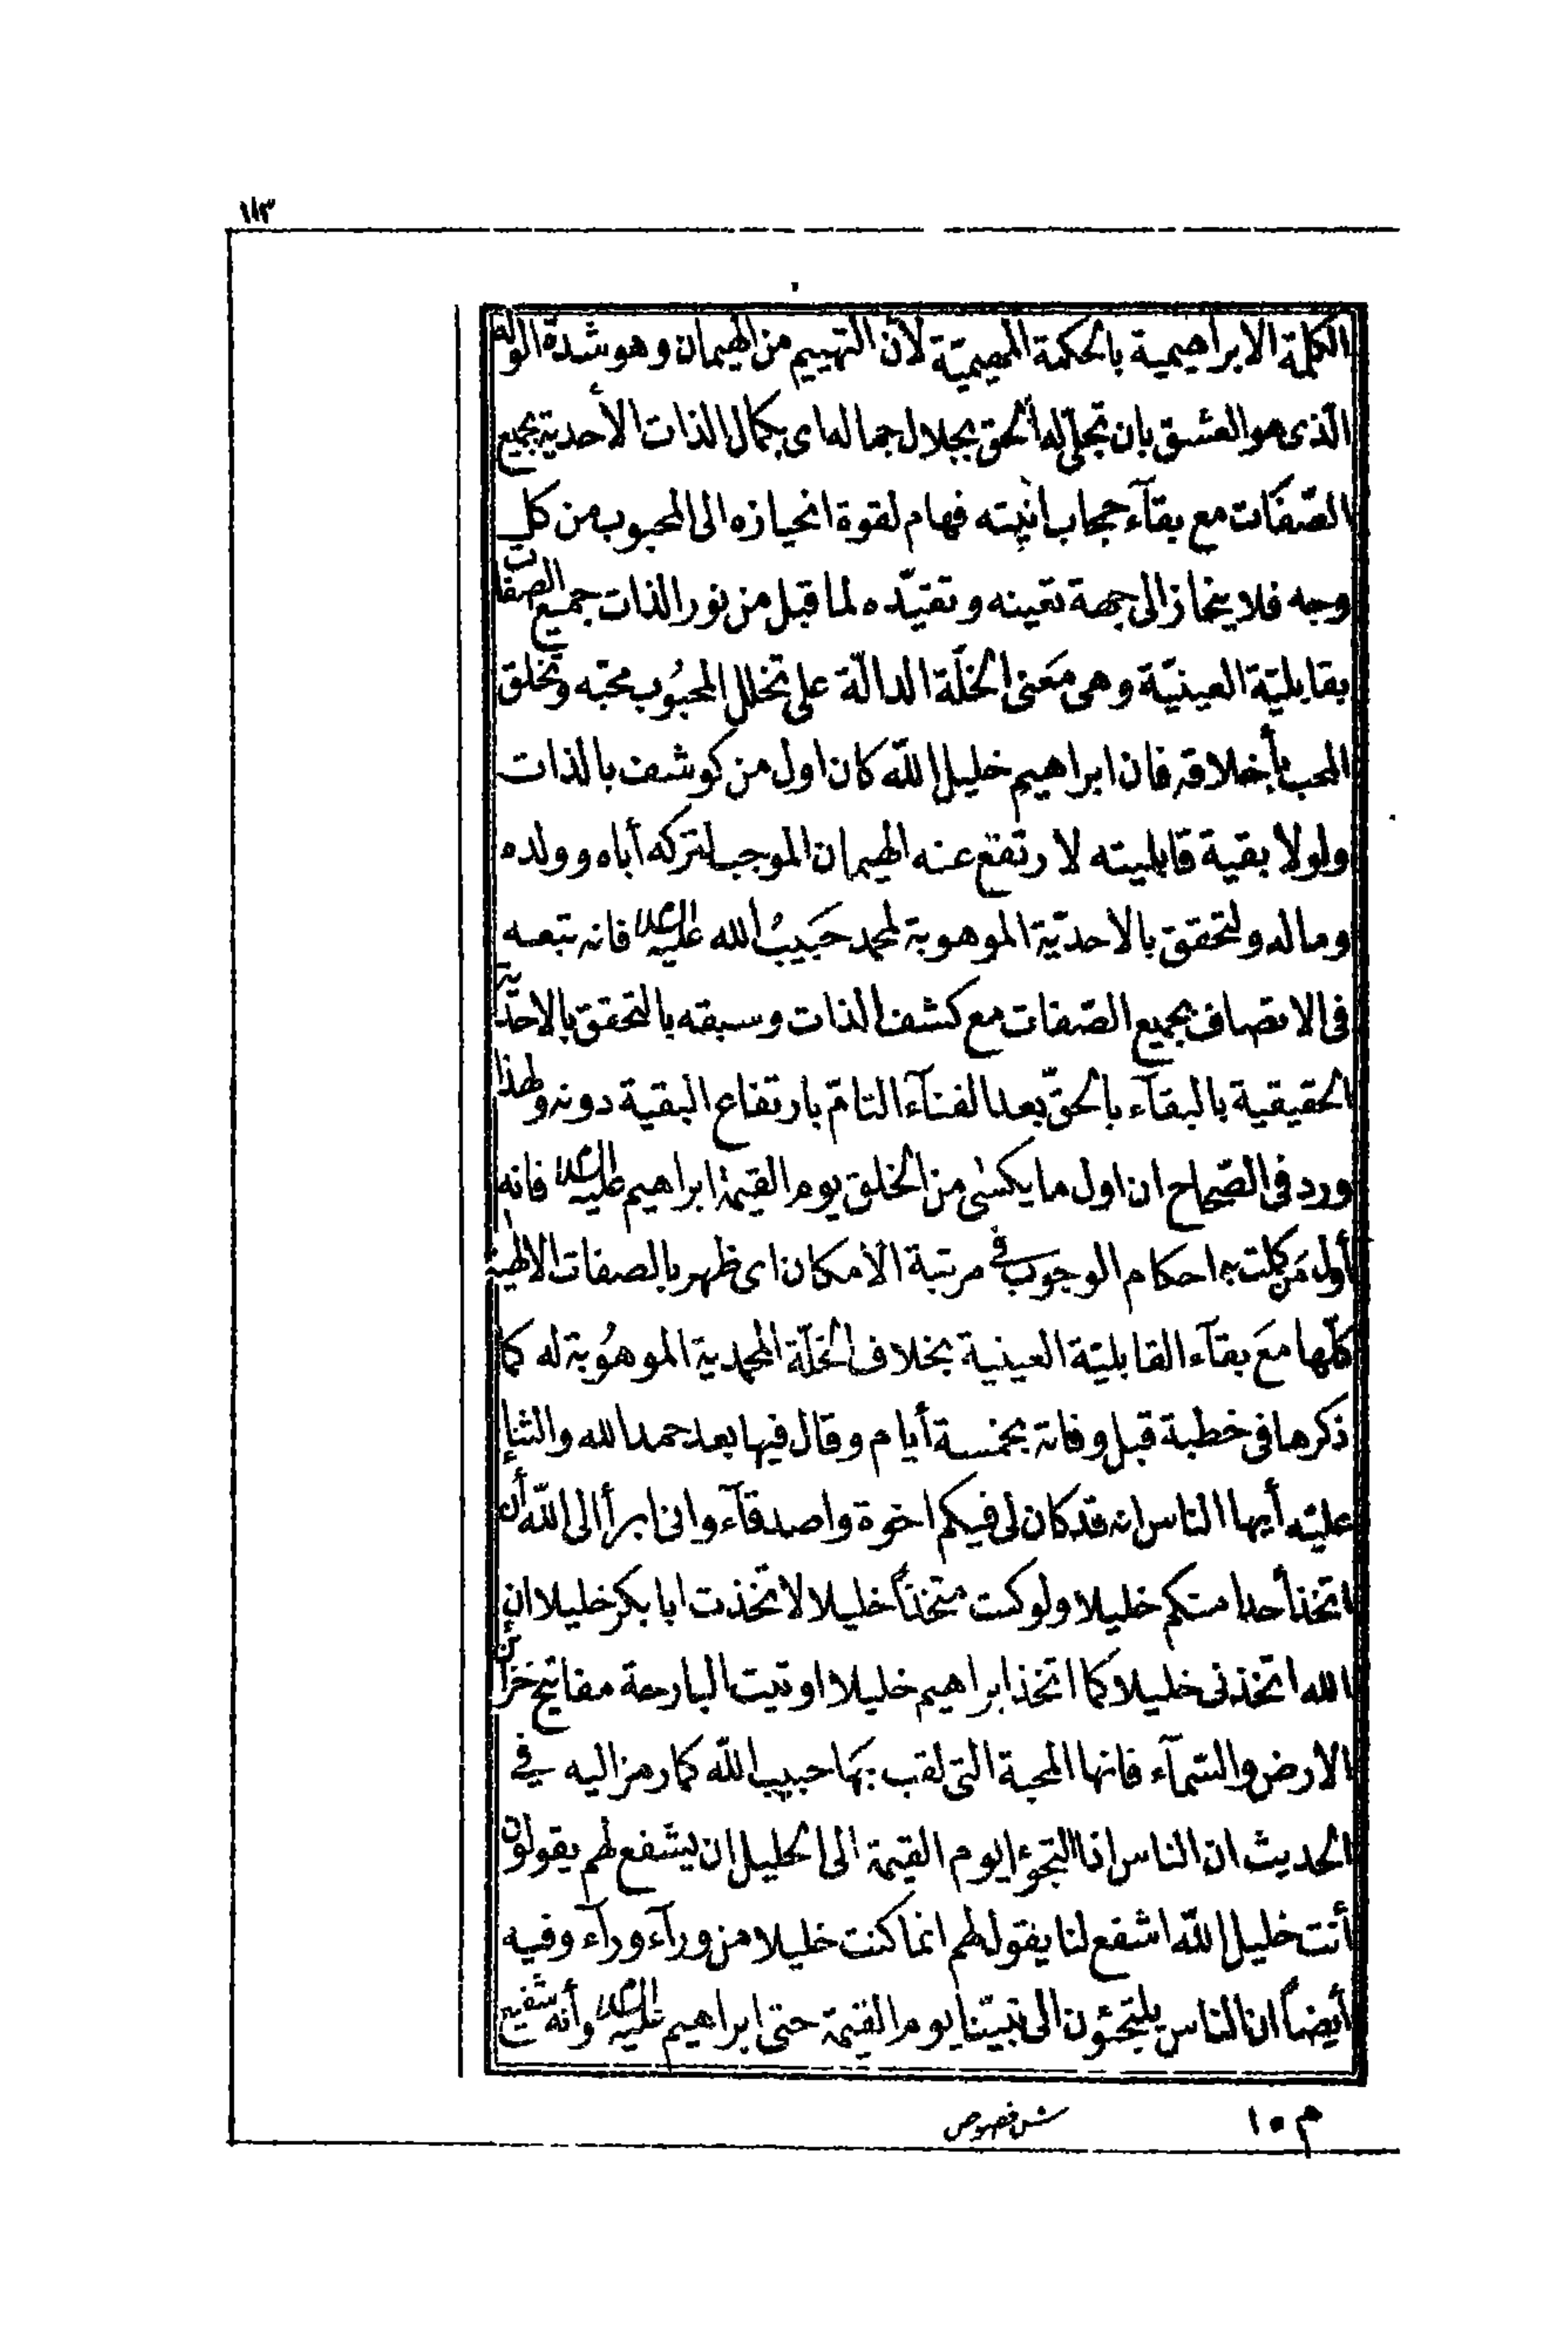 ١١٣
الكلمة الابراهيمية بالحكمة المهيمية لأن التهييم من الهيمان وهو شدة الوله
الّذى هو العشق بان تجلّى له الحق بجلال جماله اى بكمال الذات الأحدية بجميع
الصّفات مع بقآء حجاب انّيته فهام لقوة انحيازه الى المحبوب من كل
وجه فلا ينحاز الى جهة تعينه وتقيّده لما قبل من نور الذات جميع الصفات
بقابليّة العينيّة وهى مَعنى الخلّة الدالّة على تخلل المحبُوب محبّه وتخلق
المحب بأخلاقه فان ابراهيم خليل اللّه كان اول من كوشف بالذات
ولولا بقية قابليته لارتفع عنه الهيمان الموجب لتركه أباه وولده
وماله ولتحقق بالاحديّة الموهوبة لمحمد حَبيبُ الله عليه السلام فانه تبعه
فى الاتصاف بجميع الصّفات مع كشف الذات وسبقه بالتحقق بالاحديّة
الحقيقية بالبقآء بالحقّ بعد الفنآء التامّ بارتفاع البقية دونه ولهذا
ورد فى الصّحاح ان اول ما يكسى من الخلق يوم القيمة ابراهيم عليه السلام فانه
أول مَن كملت به احكام الوجوب فى مرتبة الأمكان اى ظهر بالصفات الالهية
كلّها مَع بقآء القابليّة العينية بخلاف الخلّة المحمدية الموهُوبة له كما
ذكرها فى خطبة قبل وفاته بخمسة أيام وقال فيها بعد حمد الله والثنا
عليه أيها الناس انه قد كان لى فيكم اخوة واصدقآء وانى ابرأ الى اللّه أن
اتخذ أحدا منكم خليلا ولو كنت متخذاً خليلا لاتخذت ابا بكر خليلا ان
الله اتخذنى خليلا كما اتخذ ابراهيم خليلا اوتيت البارحة مفاتيح خزائن
الارض والسّمآء فانها المحبة التى لقب بهَا حبيب اللّه كما رمز اليه في
الحديث ان الناس اذا التجوء ايوم القيمة الى الخليل ان يشفع لهم يقولون
أنت خليل اللّه اشفع لنا يقول لهم انما كنت خليلا من ورآء ورآء وفيه
أيضاً ان الناس يلتجئون الى نبيّنا يوم القيمة حتى ابراهيم عليه السلام وأنه شفيع
م ١٥